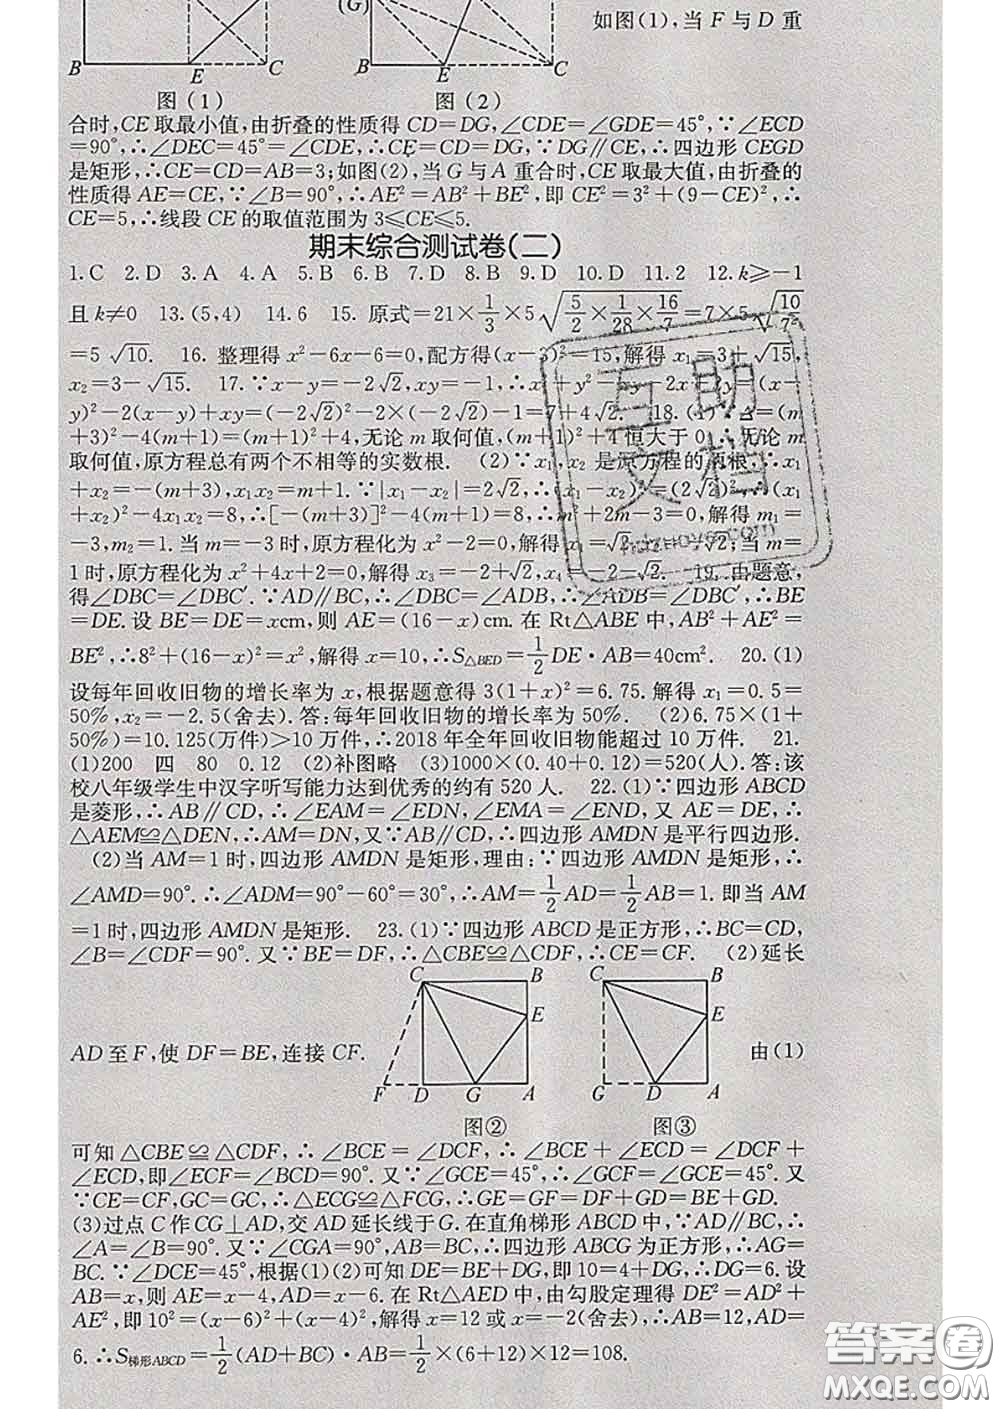 如图(1),当 F 与 D 重
(G)
B E C
E C
图 (1) 图 (2)
合时,CE 取最小值,由折叠的性质得 CD=DG,∠CDE=∠GDE=45°,∵∠ECD
=90°,∴∠DEC=45°=∠CDE,∴CE=CD=DG,∵DG∥CE,∴四边形 CEGD
是矩形,∴CE=CD=AB=3;如图(2),当 G 与 A 重合时,CE 取最大值,由折叠的
性质得 AE=CE,∵∠B=90°,∴AE²=AB²+BE²,即 CE²=3²+(9-CE)²,∴
CE=5,∴线段 CE 的取值范围为 3≤CE≤5.
期末综合测试卷(二)
1.C 2.D 3.A 4.A 5.B 6.B 7.D 8.B 9.D 10.D 11.2 12.k≥-1
且 k≠0 13.(5,4) 14.6 15. 原式=21×1/3×5√(5/2×1/28×16/7)=7×5√(10/7²)
=5√10. 16. 整理得 x²-6x-6=0,配方得(x-3)²=15,解得 x₁=3+√15,
x₂=3-√15. 17.∵x-y=-2√2,xy=-1,∴x²+y²-xy-2x+2y=(x-
y)²-2(x-y)+xy=(-2√2)²-2×(-2√2)-1=7+4√2. 18.(1)∵△=(m
+3)²-4(m+1)=(m+1)²+4,无论 m 取何值,(m+1)²+4 恒大于 0,∴无论 m
取何值,原方程总有两个不相等的实数根. (2)∵x₁,x₂ 是原方程的两根,∴x₁
+x₂=-(m+3),x₁x₂=m+1.∵|x₁-x₂|=2√2,∴(x₁-x₂)²=(2√2)²,∴(x₁
+x₂)²-4x₁x₂=8,∴[-(m+3)]²-4(m+1)=8,∴m²+2m-3=0,解得 m₁=
-3,m₂=1. 当 m=-3 时,原方程化为 x²-2=0,解得 x₁=√2,x₂=-√2;当 m=
1 时,原方程化为 x²+4x+2=0,解得 x₃=-2+√2,x₄=-2-√2. 19. 由题意,
得∠DBC=∠DBC′.∵AD∥BC,∴∠DBC=∠ADB,∴∠ADB=∠DBC′,∴BE
=DE. 设 BE=DE=xcm,则 AE=(16-x)cm. 在 Rt△ABE 中,AB²+AE²=
BE²,∴8²+(16-x)²=x²,解得 x=10,∴S△BED=1/2DE·AB=40cm². 20.(1)
设每年回收旧物的增长率为 x,根据题意得 3(1+x)²=6.75. 解得 x₁=0.5=
50%,x₂=-2.5(舍去).答:每年回收旧物的增长率为 50%. (2)6.75×(1+
50%)=10.125(万件)>10 万件,∴2018 年全年回收旧物能超过 10 万件. 21.
(1)200 四 80 0.12 (2)补图略 (3)1000×(0.40+0.12)=520(人).答:该
校八年级学生中汉字听写能力达到优秀的约有 520 人. 22.(1)∵四边形 ABCD
是菱形,∴AB∥CD,∴∠EAM=∠EDN,∠EMA=∠END,又 AE=DE,∴
△AEM≌△DEN,∴AM=DN,又∵AB∥CD,∴四边形 AMDN 是平行四边形.
(2)当 AM=1 时,四边形 AMDN 是矩形,理由:∵四边形 AMDN 是矩形,∴
∠AMD=90°.∴∠ADM=90°-60°=30°,∴AM=1/2AD=1/2AB=1. 即当 AM
=1 时,四边形 AMDN 是矩形. 23.(1)∵四边形 ABCD 是正方形,∴BC=CD,
∠B=∠CDF=90°. 又∵BE=DF,∴△CBE≌△CDF,∴CE=CF. (2)延长
AD 至 F,使 DF=BE,连接 CF. 由(1)
C B E F D G A
图②
C B E G D A
图③
可知△CBE≌△CDF,∴∠BCE=∠DCF,∴∠BCE+∠ECD=∠DCF+
∠ECD,即∠ECF=∠BCD=90°. 又∵∠GCE=45°,∴∠GCF=∠GCE=45°. 又
∵CE=CF,GC=GC,∴△ECG≌△FCG,∴GE=GF=DF+GD=BE+GD.
(3)过点 C 作 CG⊥AD,交 AD 延长线于 G. 在直角梯形 ABCD 中,∵AD∥BC,∴
∠A=∠B=90°. 又∵∠CGA=90°,AB=BC,∴四边形 ABCG 为正方形,∴AG=
BC.∵∠DCE=45°,根据(1)(2)可知 DE=BE+DG,即 10=4+DG,∴DG=6. 设
AB=x,则 AE=x-4,AD=x-6. 在 Rt△AED 中,由勾股定理得 DE²=AD²+
AE²,即 10²=(x-6)²+(x-4)²,解得 x=12 或 x=-2(舍去),∴AB=12,AD=
6.∴S梯形ABCD=1/2(AD+BC)·AB=1/2×(6+12)×12=108.
互助文档
答案圈
MXQE.COM